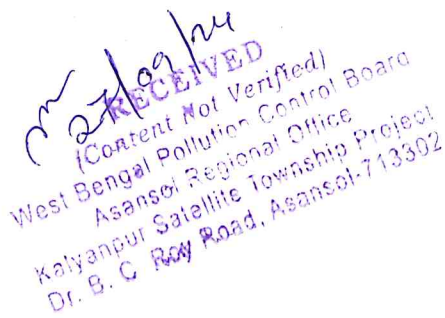 27/09/24
RECEIVED
(Content Not Verified)
West Bengal Pollution Control Board
Asansol Regional Office
Kalyanpur Satellite Township Project
Dr. B. C. Roy Road, Asansol-713302